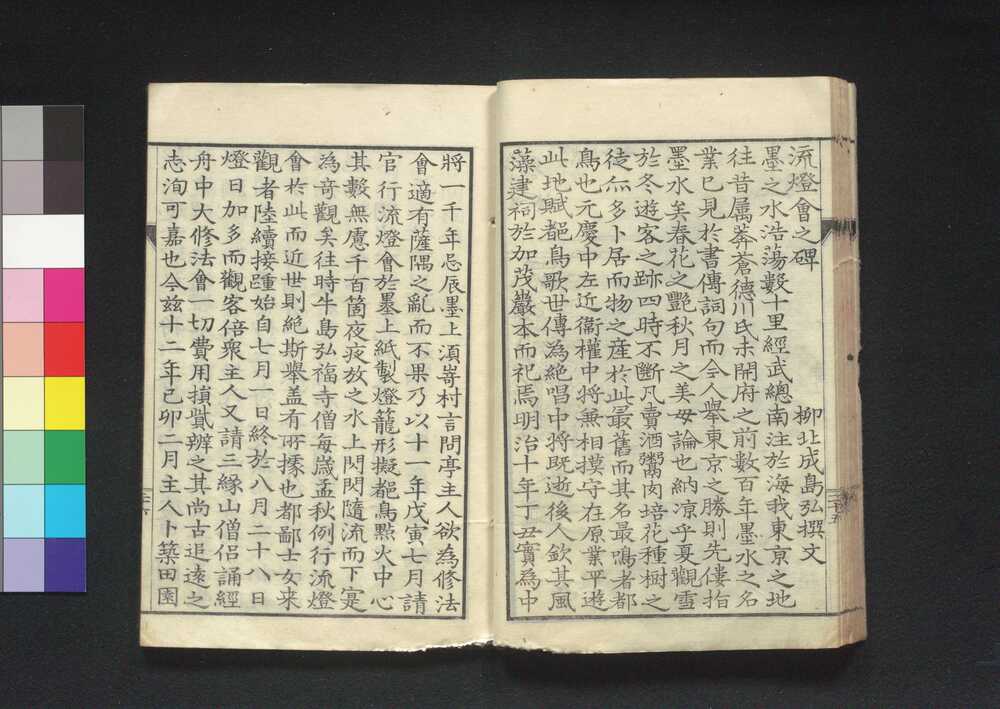 流燈會之碑
柳北成島弘撰文
墨之水浩蕩數十里經武總南注於海我東京之地
往昔属莽蒼德川氏未開府之前數百年墨水之名
業已見於書傳詞句而今人舉東京之勝則先僂指
墨水矣春花之艷秋月之美毋論也納凉乎夏觀雪
於冬遊客之跡四時不斷凡賣酒鬻肉培花種樹之
徒亦多卜居而物之産於此最舊而其名最鳴者都
鳥也元慶中左近衞權中將兼相摸守在原業平遊
此地賦都鳥歌世傳為絶唱中將既逝後人欽其風
藻建祠於加茂巖本而祀焉明治十年丁丑實為中
將一千年忌辰墨上須嵜村言問亭主人欲為修法
會適有薩隅之亂而不果乃以十一年戊寅七月請
官行流燈會於墨上紙製燈籠形擬都鳥點火中心
其數無慮千百箇夜疾放之水上閃閃隨流而下寔
為奇觀矣往時牛島弘福寺僧每歲孟秋例行流燈
會於此而近世則絶斯舉盖有所據也都鄙士女来
觀者陸續接踵始自七月一日終於八月二十八日
燈日加多而觀客倍衆主人又請三緣山僧侣誦經
舟中大修法會一切費用損貲辨之其尚古追遠之
志洵可嘉也今茲十二年己卯二月主人卜築田園